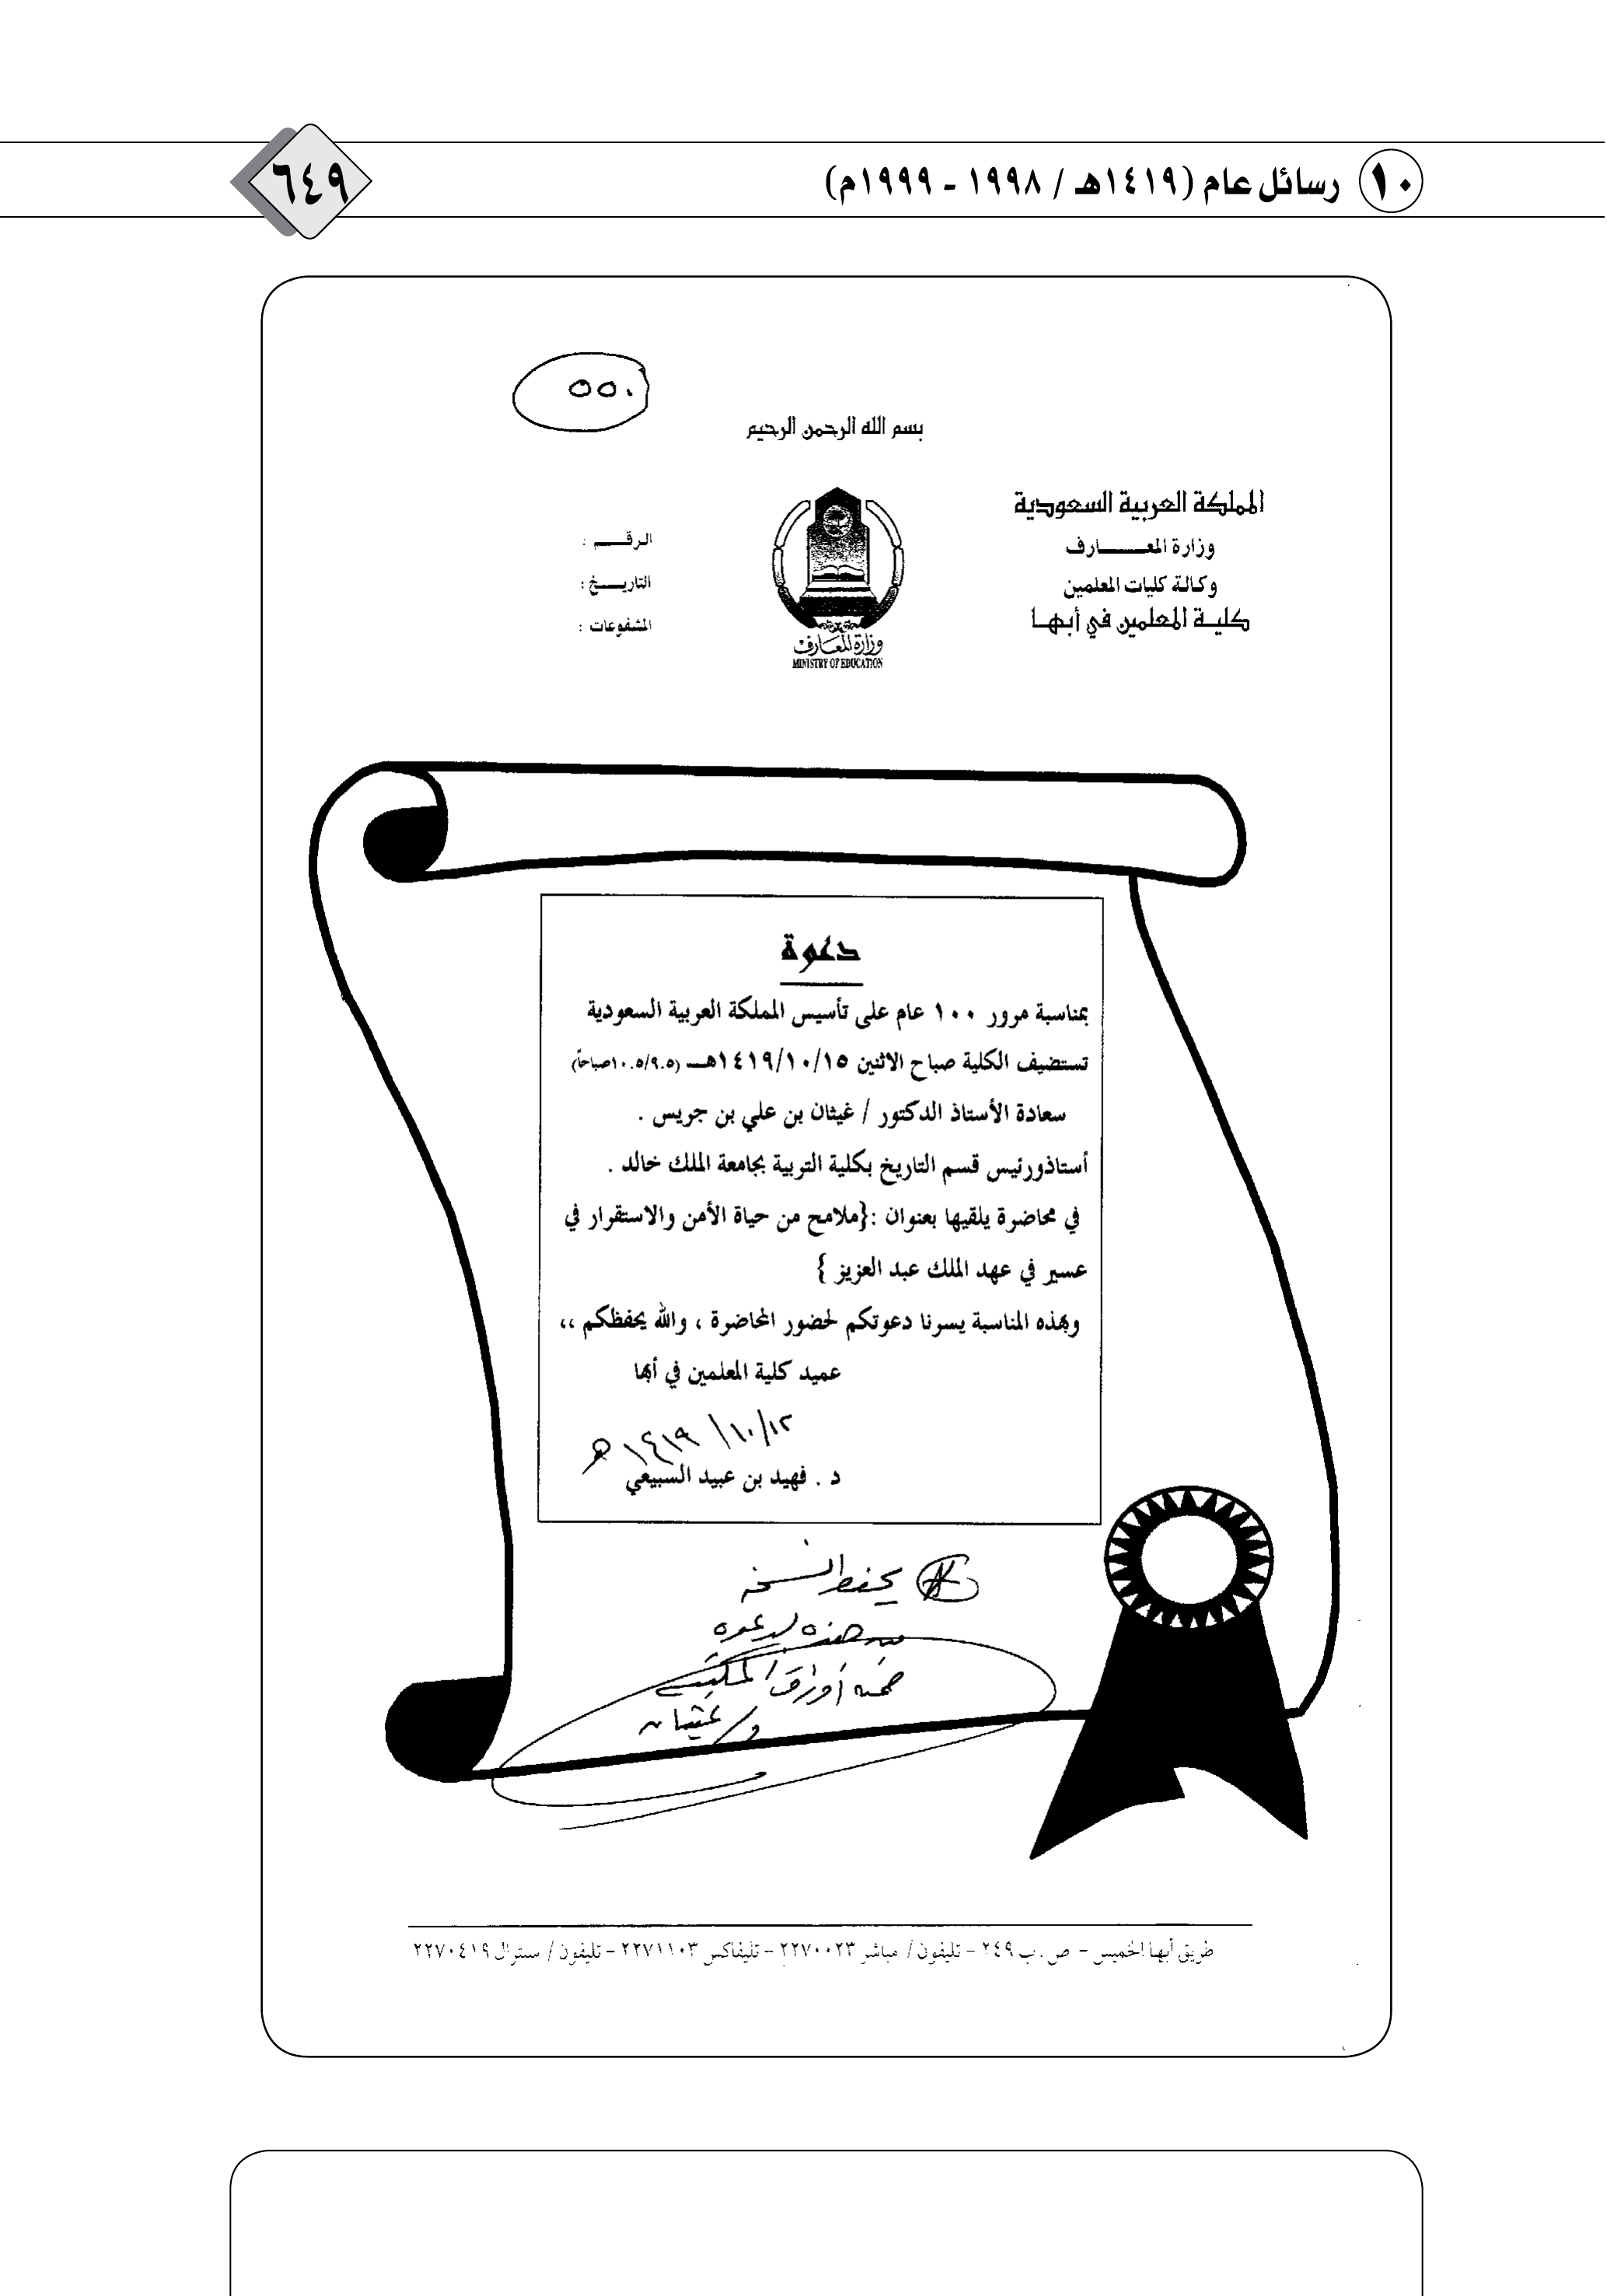 ١٠ رسائل عام (١٤١٩هـ / ١٩٩٨ - ١٩٩٩م)
٦٤٩
٥٥٠
بسم الله الرحمن الرحيم
المملكة العربية السعودية
وزارة المعـــــارف
وكالة كليات المعلمين
كليـة المعلمين في أبهـا
وزارة المعارف
MINISTRY OF EDUCATION
الرقــــم :
التاريـــخ :
المشفوعات :
دعوة
بمناسبة مرور ١٠٠ عام على تأسيس المملكة العربية السعودية
تستضيف الكلية صباح الاثنين ١٤١٩/١٠/١٥هــ (١٠.٥/٩.٥صباحاً)
سعادة الأستاذ الدكتور / غيثان بن علي بن جريس .
أستاذورئيس قسم التاريخ بكلية التربية بجامعة الملك خالد .
في محاضرة يلقيها بعنوان :{ملامح من حياة الأمن والاستقرار في
عسير في عهد الملك عبد العزيز }
وبهذه المناسبة يسرنا دعوتكم لحضور المحاضرة ، والله يحفظكم ،،
عميد كلية المعلمين في أبها
١٤١٩/١٠/١٢ هـ
د . فهيد بن عبيد السبيعي
يحفظ النسخة
من هذه الدعوة
ضمن أوراق المكتبة
د/ غيثان
طريق أبها الخميس - ص . ب ٢٤٩ - تليفون / مباشر ٢٢٧٠٠٢٣ - تليفاكس ٢٢٧١١٠٣ - تليفون / سنترال ٢٢٧٠٤١٩